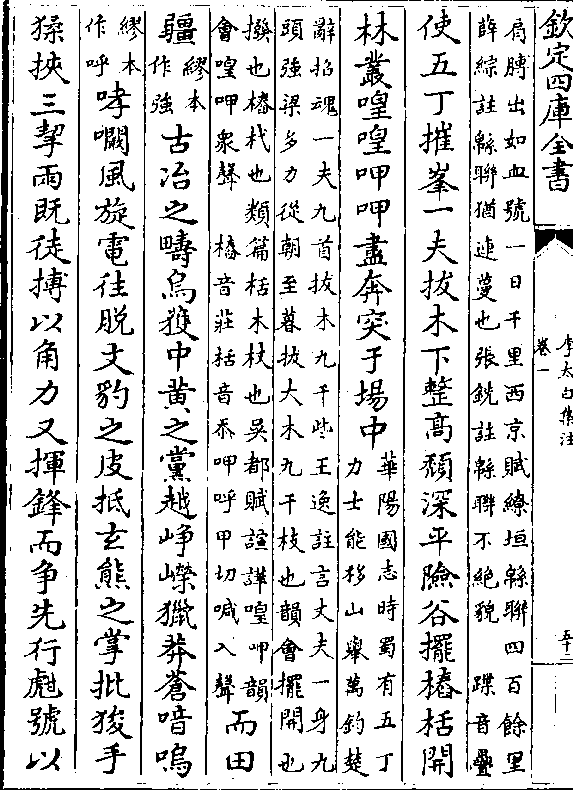 欽定四庫全書
李太白集注
卷一
肩膊出如血號一日千里西京賦繚垣緜聯四百餘里
薛綜註緜聯猶連蔓也張銑註緜聯不絕貌 蹀音疊
使五丁摧峯一夫拔木下整高頹深平險谷擺樁栝開
林叢喤喤呷呷盡奔突于場中
華陽國志時蜀有五丁
力士能移山舉萬鈞楚
辭招魂一夫九首拔木九千些王逸註言丈夫一身九
頭強梁多力從朝至暮拔大木九千枝也韻會擺開也
撥也樁杙也類篇栝木杖也吳都賦諠譁喤呷韻
會喤呷衆聲 樁音莊栝音忝呷呼甲切喊入聲
而田
疆
繆本
作強
古冶之疇烏獲中黃之黨越崢嶸獵莽蒼喑嗚
繆本
作呼
哮㘚風旋電往脫文豹之皮抵玄熊之掌批狻手
猱挾三挈兩既徒搏以角力又揮鋒而爭先行甝號以